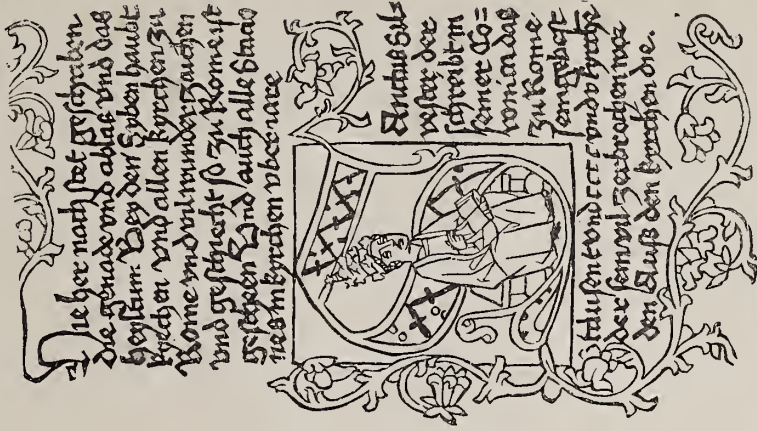 Hie her nach stet geschriben
die genade vnd ablas vnd das
heyltum Bey den Syben haubt
kyrchen vnd allen kyrchen zu
Rome vnd vil wunderzaichen
vnd geschicht so zu Rome ist
Gescheen Vnd auch alle Staco
nes in kyrchen vber iare
Anctus Sil=
vester der
schreibt in
seiner Co=
ronica das
zu Rome
sein gebest
stausent vnd cccc vnd v kyrche
der sein vil zerbrochen wor
den Auß den kyrchen die.